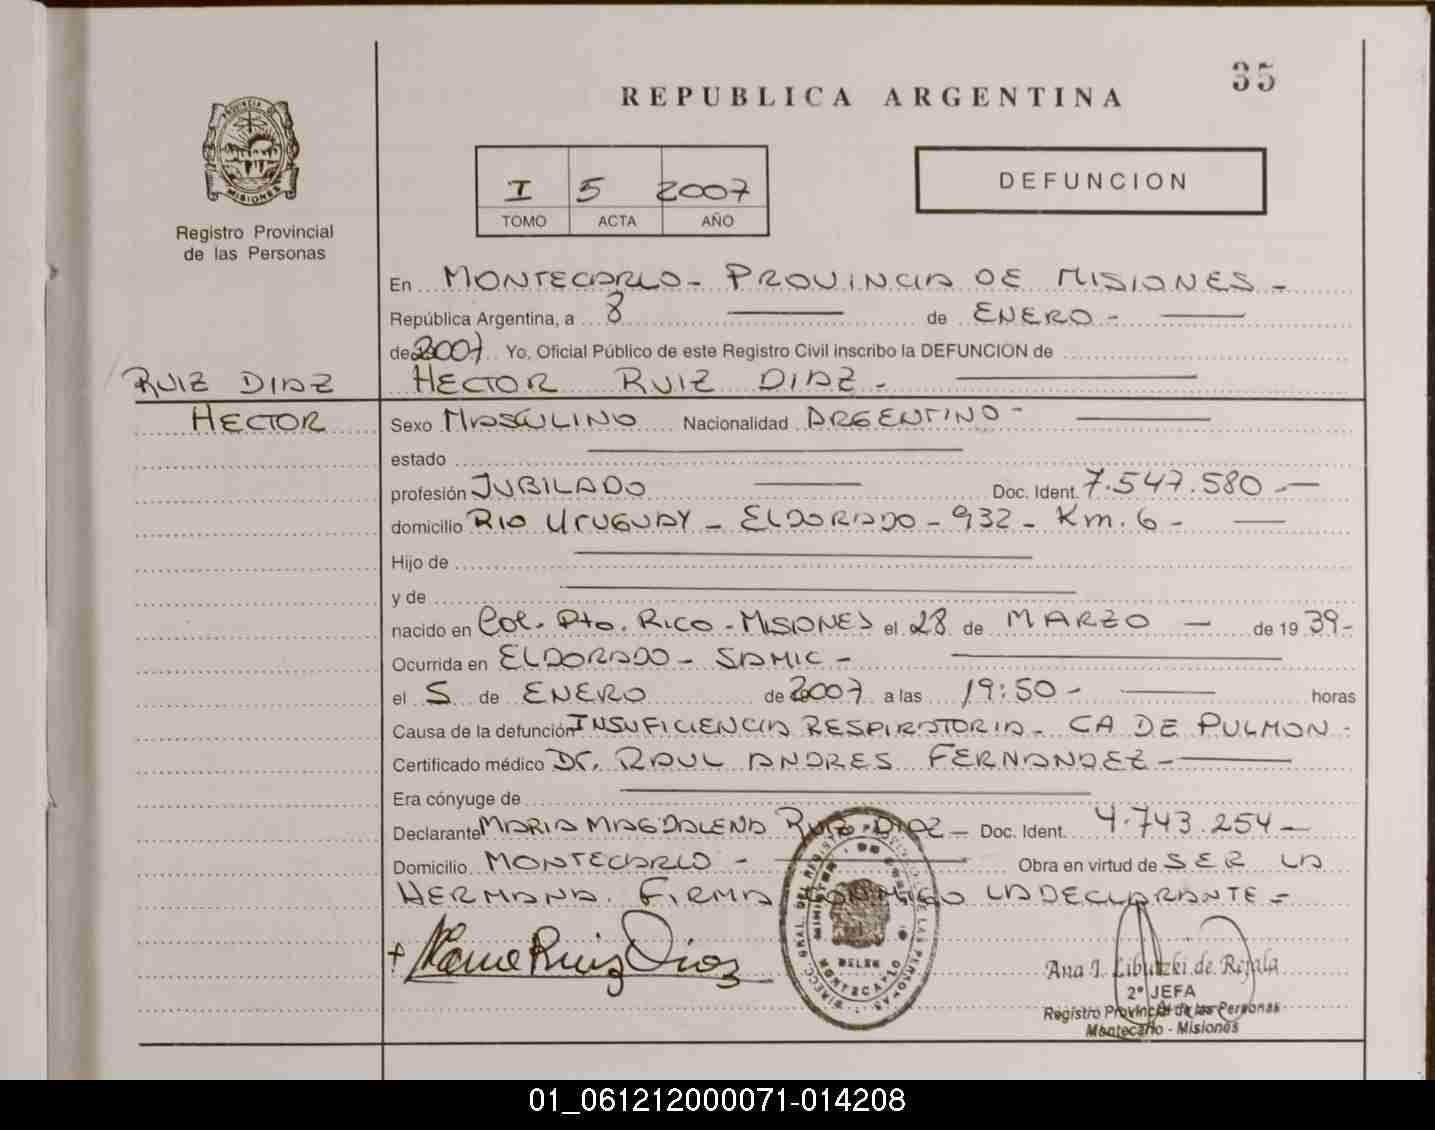 35
REPUBLICA ARGENTINA
PROVINCIA DE
MISIONES
Registro Provincial
de las Personas
I 5 2007
TOMO ACTA AÑO
DEFUNCION
En MONTECARLO - PROVINCIA DE MISIONES -
República Argentina, a 8 de ENERO -
de 2007 Yo, Oficial Público de este Registro Civil inscribo la DEFUNCION de
RUIZ DIAZ HECTOR RUIZ DIAZ -
HECTOR Sexo MASCULINO Nacionalidad ARGENTINO -
estado
profesión JUBILADO Doc. Ident. 7.547.580 -
domicilio RIO URUGUAY - ELDORADO - 932 - Km. 6 -
Hijo de
y de
nacido en Col. Pto. RICO - MISIONES el 28 de MARZO - de 19 39 -
Ocurrida en ELDORADO - SAMIC -
el 5 de ENERO de 2007 a las 19:50 - horas
Causa de la defunción INSUFICIENCIA RESPIRATORIA - CA DE PULMON -
Certificado médico Dr. RAUL ANDRES FERNANDEZ -
Era cónyuge de
Declarante MARIA MAGDALENA RUIZ DIAZ - Doc. Ident. 4.743.254 -
Domicilio MONTECARLO - Obra en virtud de SER LA
HERMANA. FIRMA CONMIGO LA DECLARANTE -
Ruiz Diaz
MONTECARLO
Ana I. Libutzki de Rejala
2º JEFA
Registro Provincial de las Personas
Montecarlo - Misiones
01_061212000071-014208